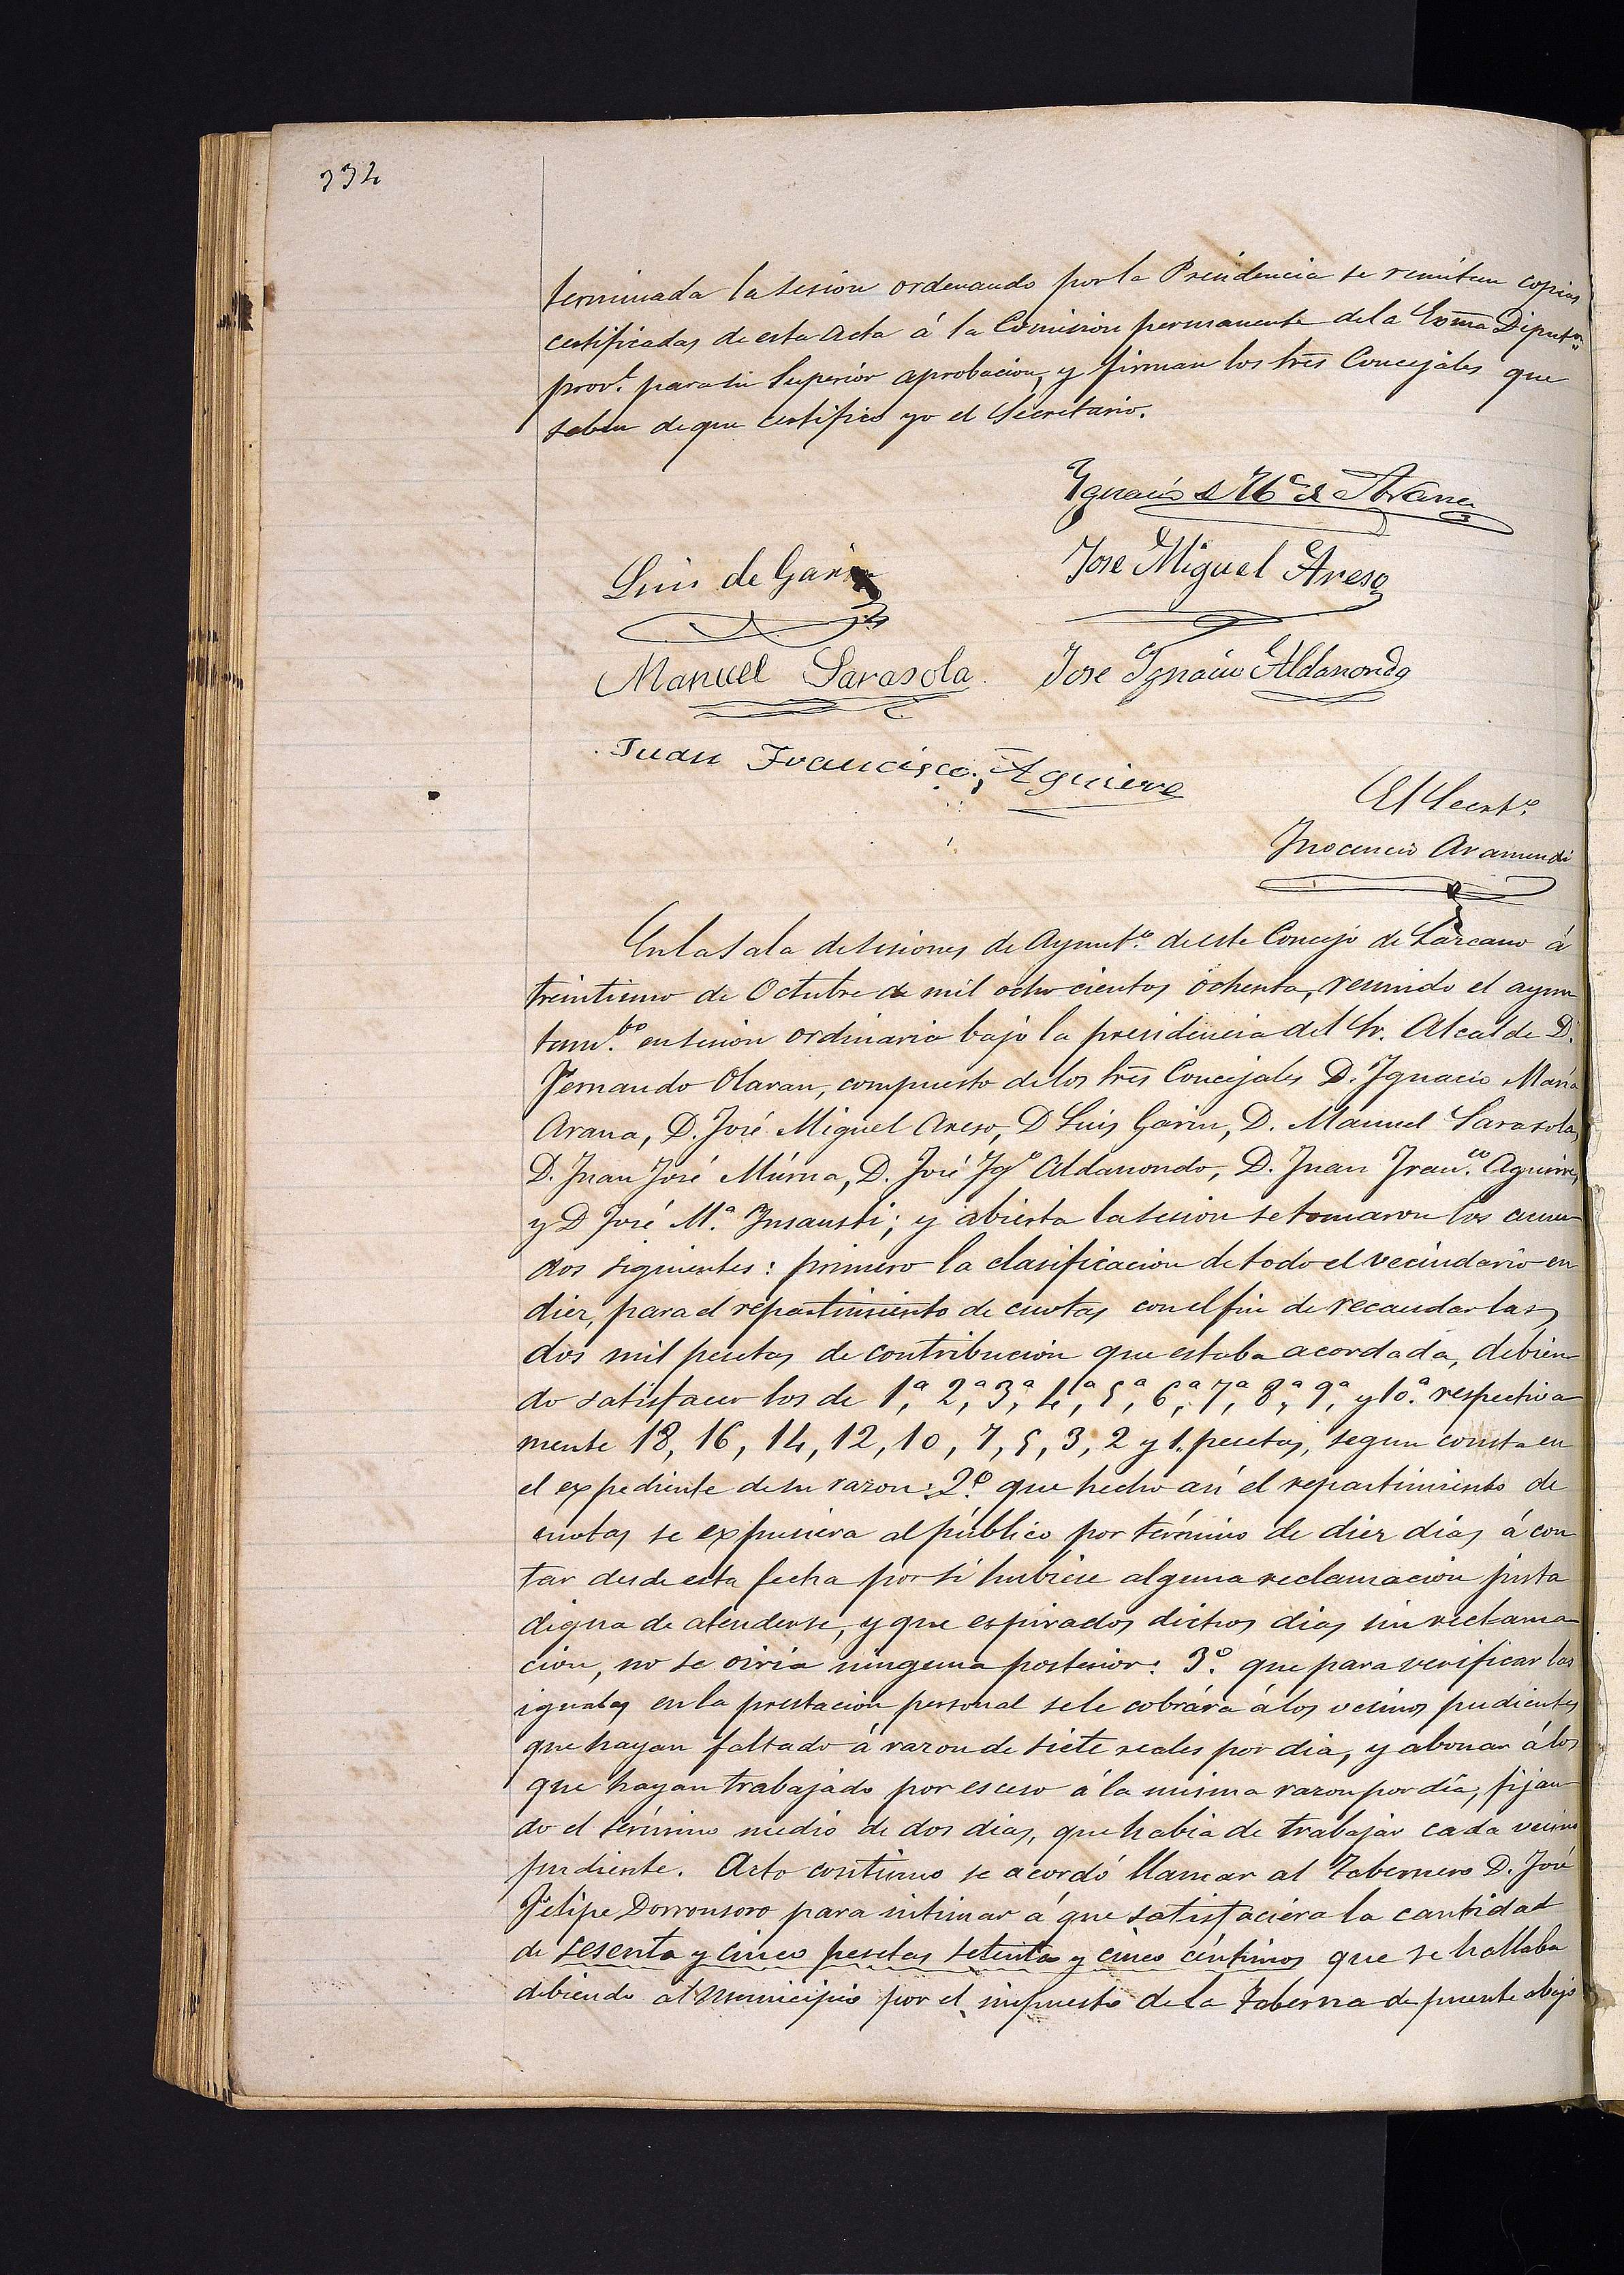 332
terminada la sesion ordenando por la Presidencia se remitan copias
certificadas de esta acta á la Comision permanente dela Exma Diputon
prov.l para su Superior aprobacion, y firman los tres Concejales que
saben de que certifico yo el Secretario.
Ygnacio Ma de Arana
Luis de Garin
Jose Miguel Areso
Manuel Sarasola
Jose Ygnacio Aldanondo
Juan Francisco, Aguirre
El Secrt.o
Ynocencio Aramendi
En la Sala de sesiones de Ayunt.o de este Concejo de Lazcano á
treintiuno de Octubre de mil ochocientos ochenta, reunido el ayun
tam.to en sesion ordinaria bajo la presidencia del Sr. Alcalde D.
Fernando Olaran, compuesto de los tres Concejales D. Ygnacio Maria
Arana, D. José Miguel Areso, D Luis Garin, D. Manuel Sarasola,
D. Juan José Múrua, D. José Yg.o Aldanondo, D. Juan Fran.co Aguirre,
y D José M.a Ynsausti; y abierta la sesion se tomaron los acuer
dos siguientes: primero la clasificacion de todo el vecindario en
diez, para el repartimiento de cuotas con el fin de recaudar las
dos mil pesetas de contribucion que estaba acordada, debien
do satisfacer los de 1.a, 2.a, 3.a, 4.a, 5.a, 6.a, 7.a, 8.a, 9.a, y 10.a respectiva
mente 18, 16, 14, 12, 10, 7, 5, 3, 2 y 1. pesetas, segun consta en
el expediente de su razon: 2.o que hecho asi el repartimiento de
cuotas se expusiera al público por término de diez dias á con
tar desde esta fecha por si hubiese alguna reclamacion justa
digna de atenderse, y que espirados dichos dias sin reclama
cion, no se oiria ninguna posterior: 3.o que para verificar las
igualas en la prestacion personal se le cobrára á los vecinos pudientes
que hayan faltado á razon de siete reales por dia, y abonar á los
que hayan trabajado por esceso á la misma razon por dia, fijan
do el término medio de dos dias, que habia de trabajar cada vecino
pudiente. Acto continuo se acordó llamar al Tabernero D. José
Felipe Dorronsoro para intimar á que satisfaciera la cantidad
de sesenta y cinco pesetas setenta y cinco céntimos que se hallaba
debiendo al Municipio por el impuesto de la Taberna de puente abajo